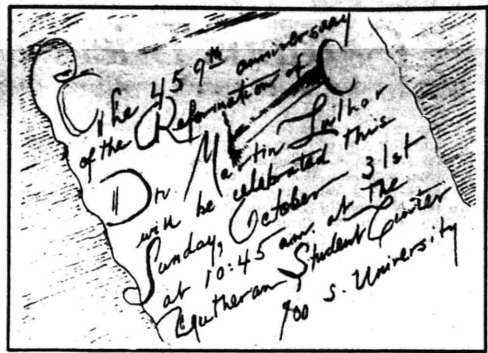 The 459th anniversary
of the Reformation of
Dr. Martin Luthor
will be celebrated this
Sunday, October 31st
at 10:45 am. at The
Lutheran Student Center
700 S. University